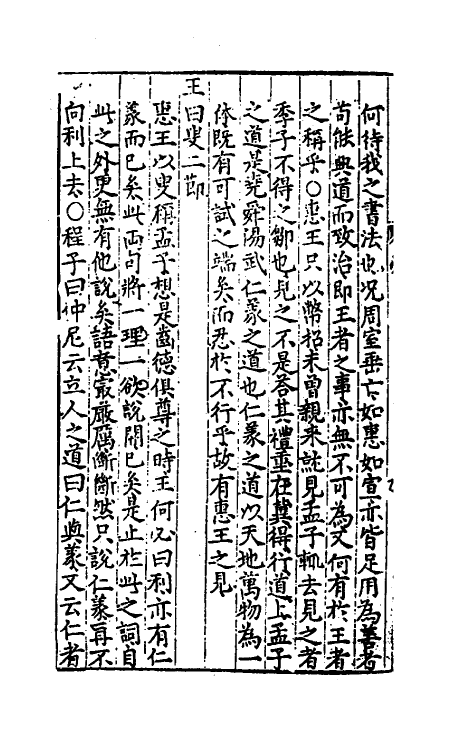 何待我之書法也况周室垂亡如惠如宣亦皆足用為善者
苟能與道而致治即王者之事亦無不可為又何有於王者
之稱乎○惠王只以幣招未曾親来就見孟子輒去見之者
季子不得之鄒也見之不是答其禮重在兾得行道上孟子
之道是堯舜湯武仁義之道也仁義之道以天地萬物為一
体既有可試之端矣而忍於不行乎故有惠王之見
王曰叟二節
惠王以叟稱孟子想是齒德俱尊之時王何必曰利亦有仁
義而已矣此両句將一理一欲說開已矣是止於此之詞自
此之外更無有他說矣語意㝡嚴厲斷斷然只說仁義再不
向利上去○程子曰仲尼云立人之道曰仁與義又云仁者